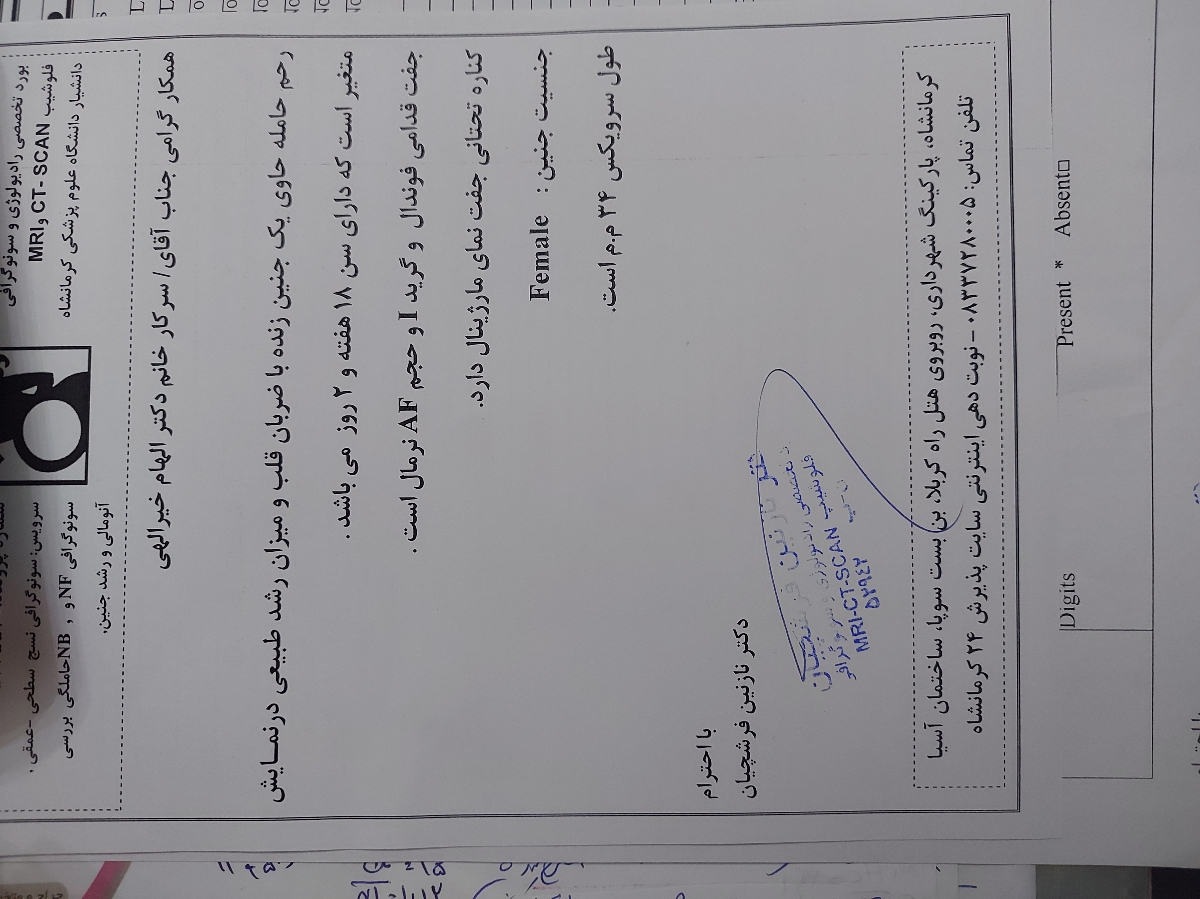 بورد تخصصی رادیولوژی و سونوگرافی
فلوشیپ MRI و CT- SCAN
دانشیار دانشگاه علوم پزشکی کرمانشاه
سرویس: سونوگرافی نسج سطحی -عمقی ،
سونوگرافی NF و ، NB حاملگی بررسی
آنومالی و رشد جنین.
همکار گرامی جناب آقای/ سرکار خانم دکتر الهام خیرالهی
رحم حامله حاوی یک جنین زنده با ضربان قلب و میزان رشد طبیعی درنمـایش
متغیر است که دارای سن ۱۸ هفته و ۲ روز می باشد .
جفت قدامی فوندال و گرید I و حجم AF نرمال است .
کناره تحتانی جفت نمای مارژینال دارد.
جنسیت جنین : Female
طول سرویکس ۳۴ م.م است.
با احترام
دکتر نازنین فرشچیان
دکتر نازنین فرشچیان
تخصصی رادیولوژی و سونوگرافی
فلوشیپ MRI-CT-SCAN
۵۲۹٤۲
کرمانشاه، پارکینگ شهرداری، روبروی هتل راه کربلا، بن بست سوپا، ساختمان آسیا
تلفن تماس: ۰۸۳۳۷۲۸۰۰۰۵ – نوبت دهی اینترنتی سایت پذیرش ۲۴ کرمانشاه
Digits Present * Absent□